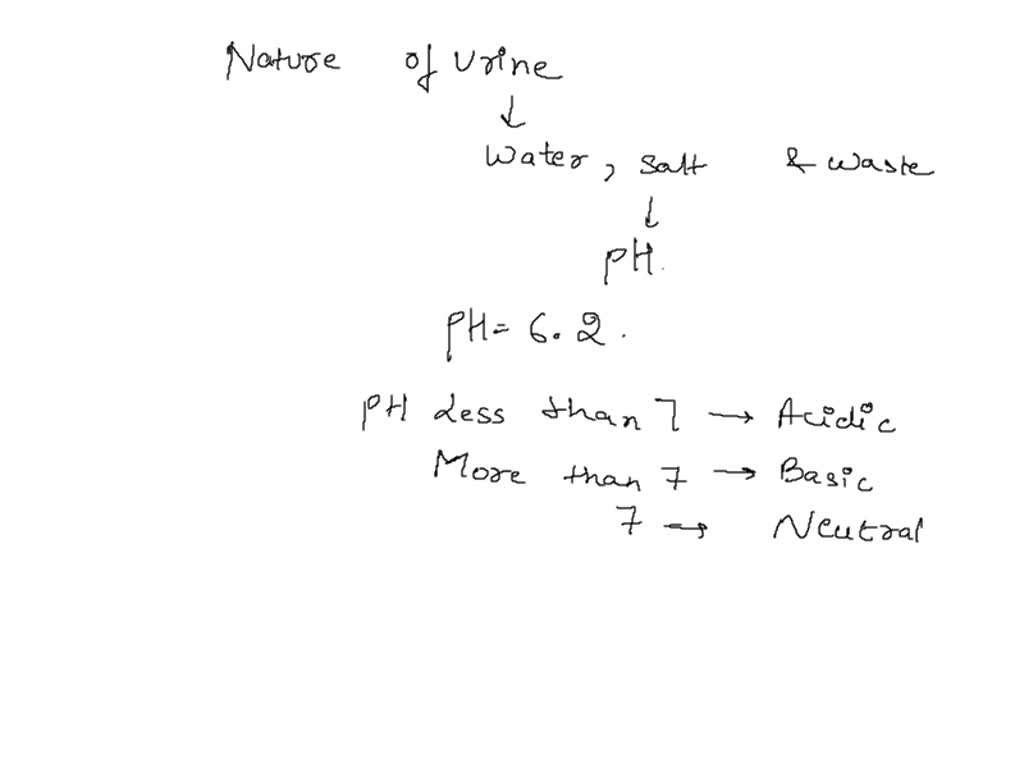 Nature of Urine
↓
Water, Salt & waste
↓
pH.
pH = 6.2.
pH Less than 7 → Acidic
More than 7 → Basic
7 → Neutral